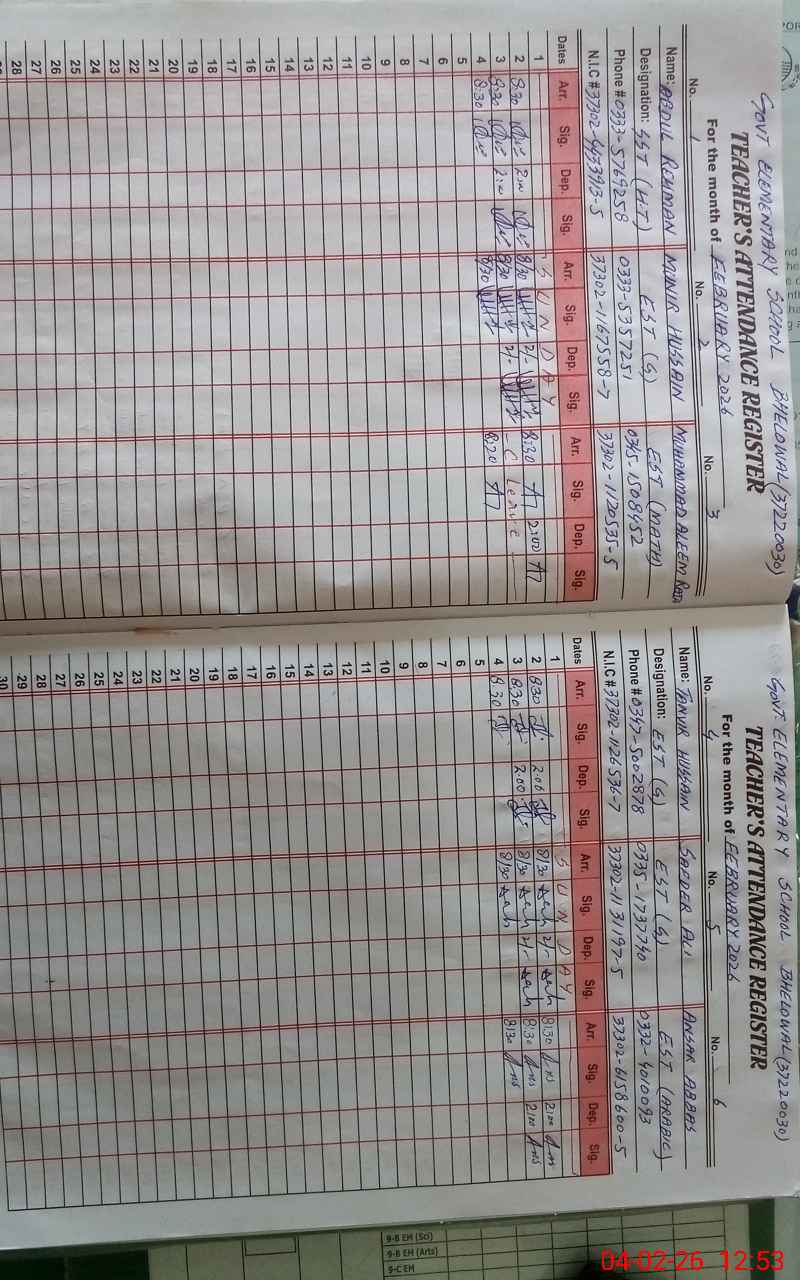 GOVT ELEMENTARY SCHOOL BHELOWAL (37220030)
TEACHER'S ATTENDANCE REGISTER
For the month of FEBRUARY 2026
No. 1 No. 2 No. 3
Name: ABDUL REHMAN MUNIR HUSSAIN MUHAMMAD ALEEM RAZA
Designation: SST (H.T) EST (G) EST (MATH)
Phone # 0333-5769258 0333-5357251 0345-1508452
N.I.C # 37302-4433913-5 37302-1167558-7 37302-1120535-5
Dates Arr. Sig. Dep. Sig. Arr. Sig. Dep. Sig. Arr. Sig. Dep. Sig.
1 S U N D A Y
2 8:30 2:00 8/30 2/- 8:30 2:00
3 8:30 2:00 8/30 2/- C Leave
4 8:30 8/30 8:20
5
6
7
8
9
10
11
12
13
14
15
16
17
18
19
20
21
22
23
24
25
26
27
28
GOVT. ELEMENTARY SCHOOL BHELOWAL (37220030)
TEACHER'S ATTENDANCE REGISTER
For the month of FEBRUARY 2026
No. 4 No. 5 No. 6
Name: TANVIR HUSSAIN SAFDER ALI ANSAR ABBAS
Designation: EST (G) EST (G) EST (ARABIC)
Phone # 0347-5002878 0335-1737740 0332-4010093
N.I.C # 37302-1126536-7 37302-1131197-5 37302-6158600-5
Dates Arr. Sig. Dep. Sig. Arr. Sig. Dep. Sig. Arr. Sig. Dep. Sig.
1 S U N D A Y
2 8:30 2:00 8/30 2/- 8:30 2:00
3 8:30 2:00 8/30 2/- 8:30 2:00
4 8:30 8/30 8:30
5
6
7
8
9
10
11
12
13
14
15
16
17
18
19
20
21
22
23
24
25
26
27
28
29
30
9-B EM (Sci)
9-B EM (Arts)
9-C EM
04-02-26 12:53